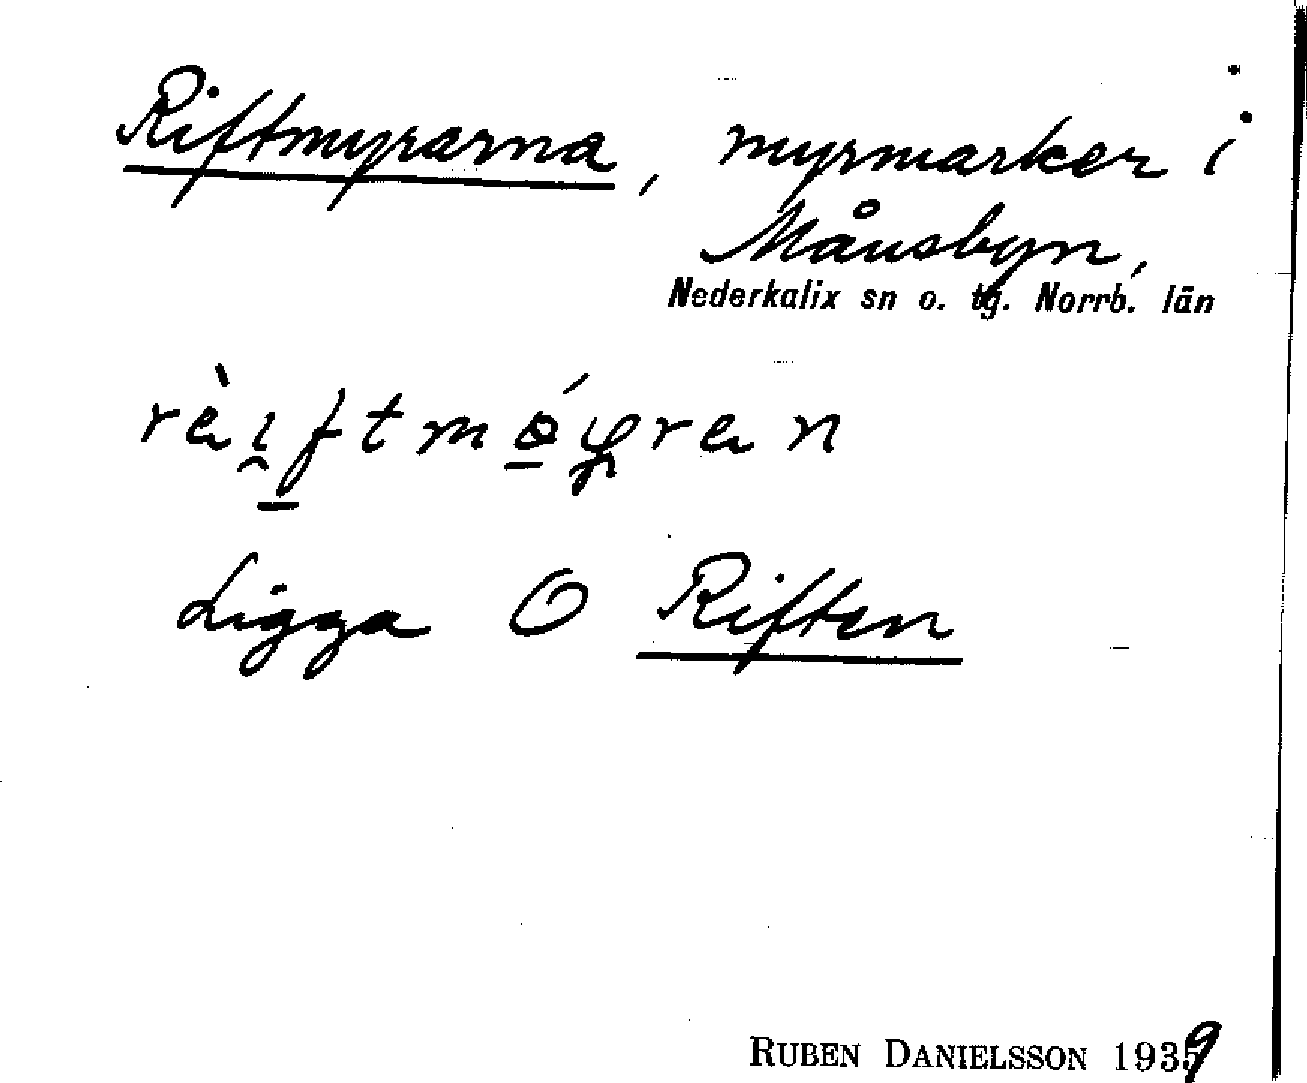 Riftmyrarna, myrmarker i
Månsbyn,
Nederkalix sn o. tg. Norrb. län
Ligga O Riften
RUBEN DANIELSSON 1939